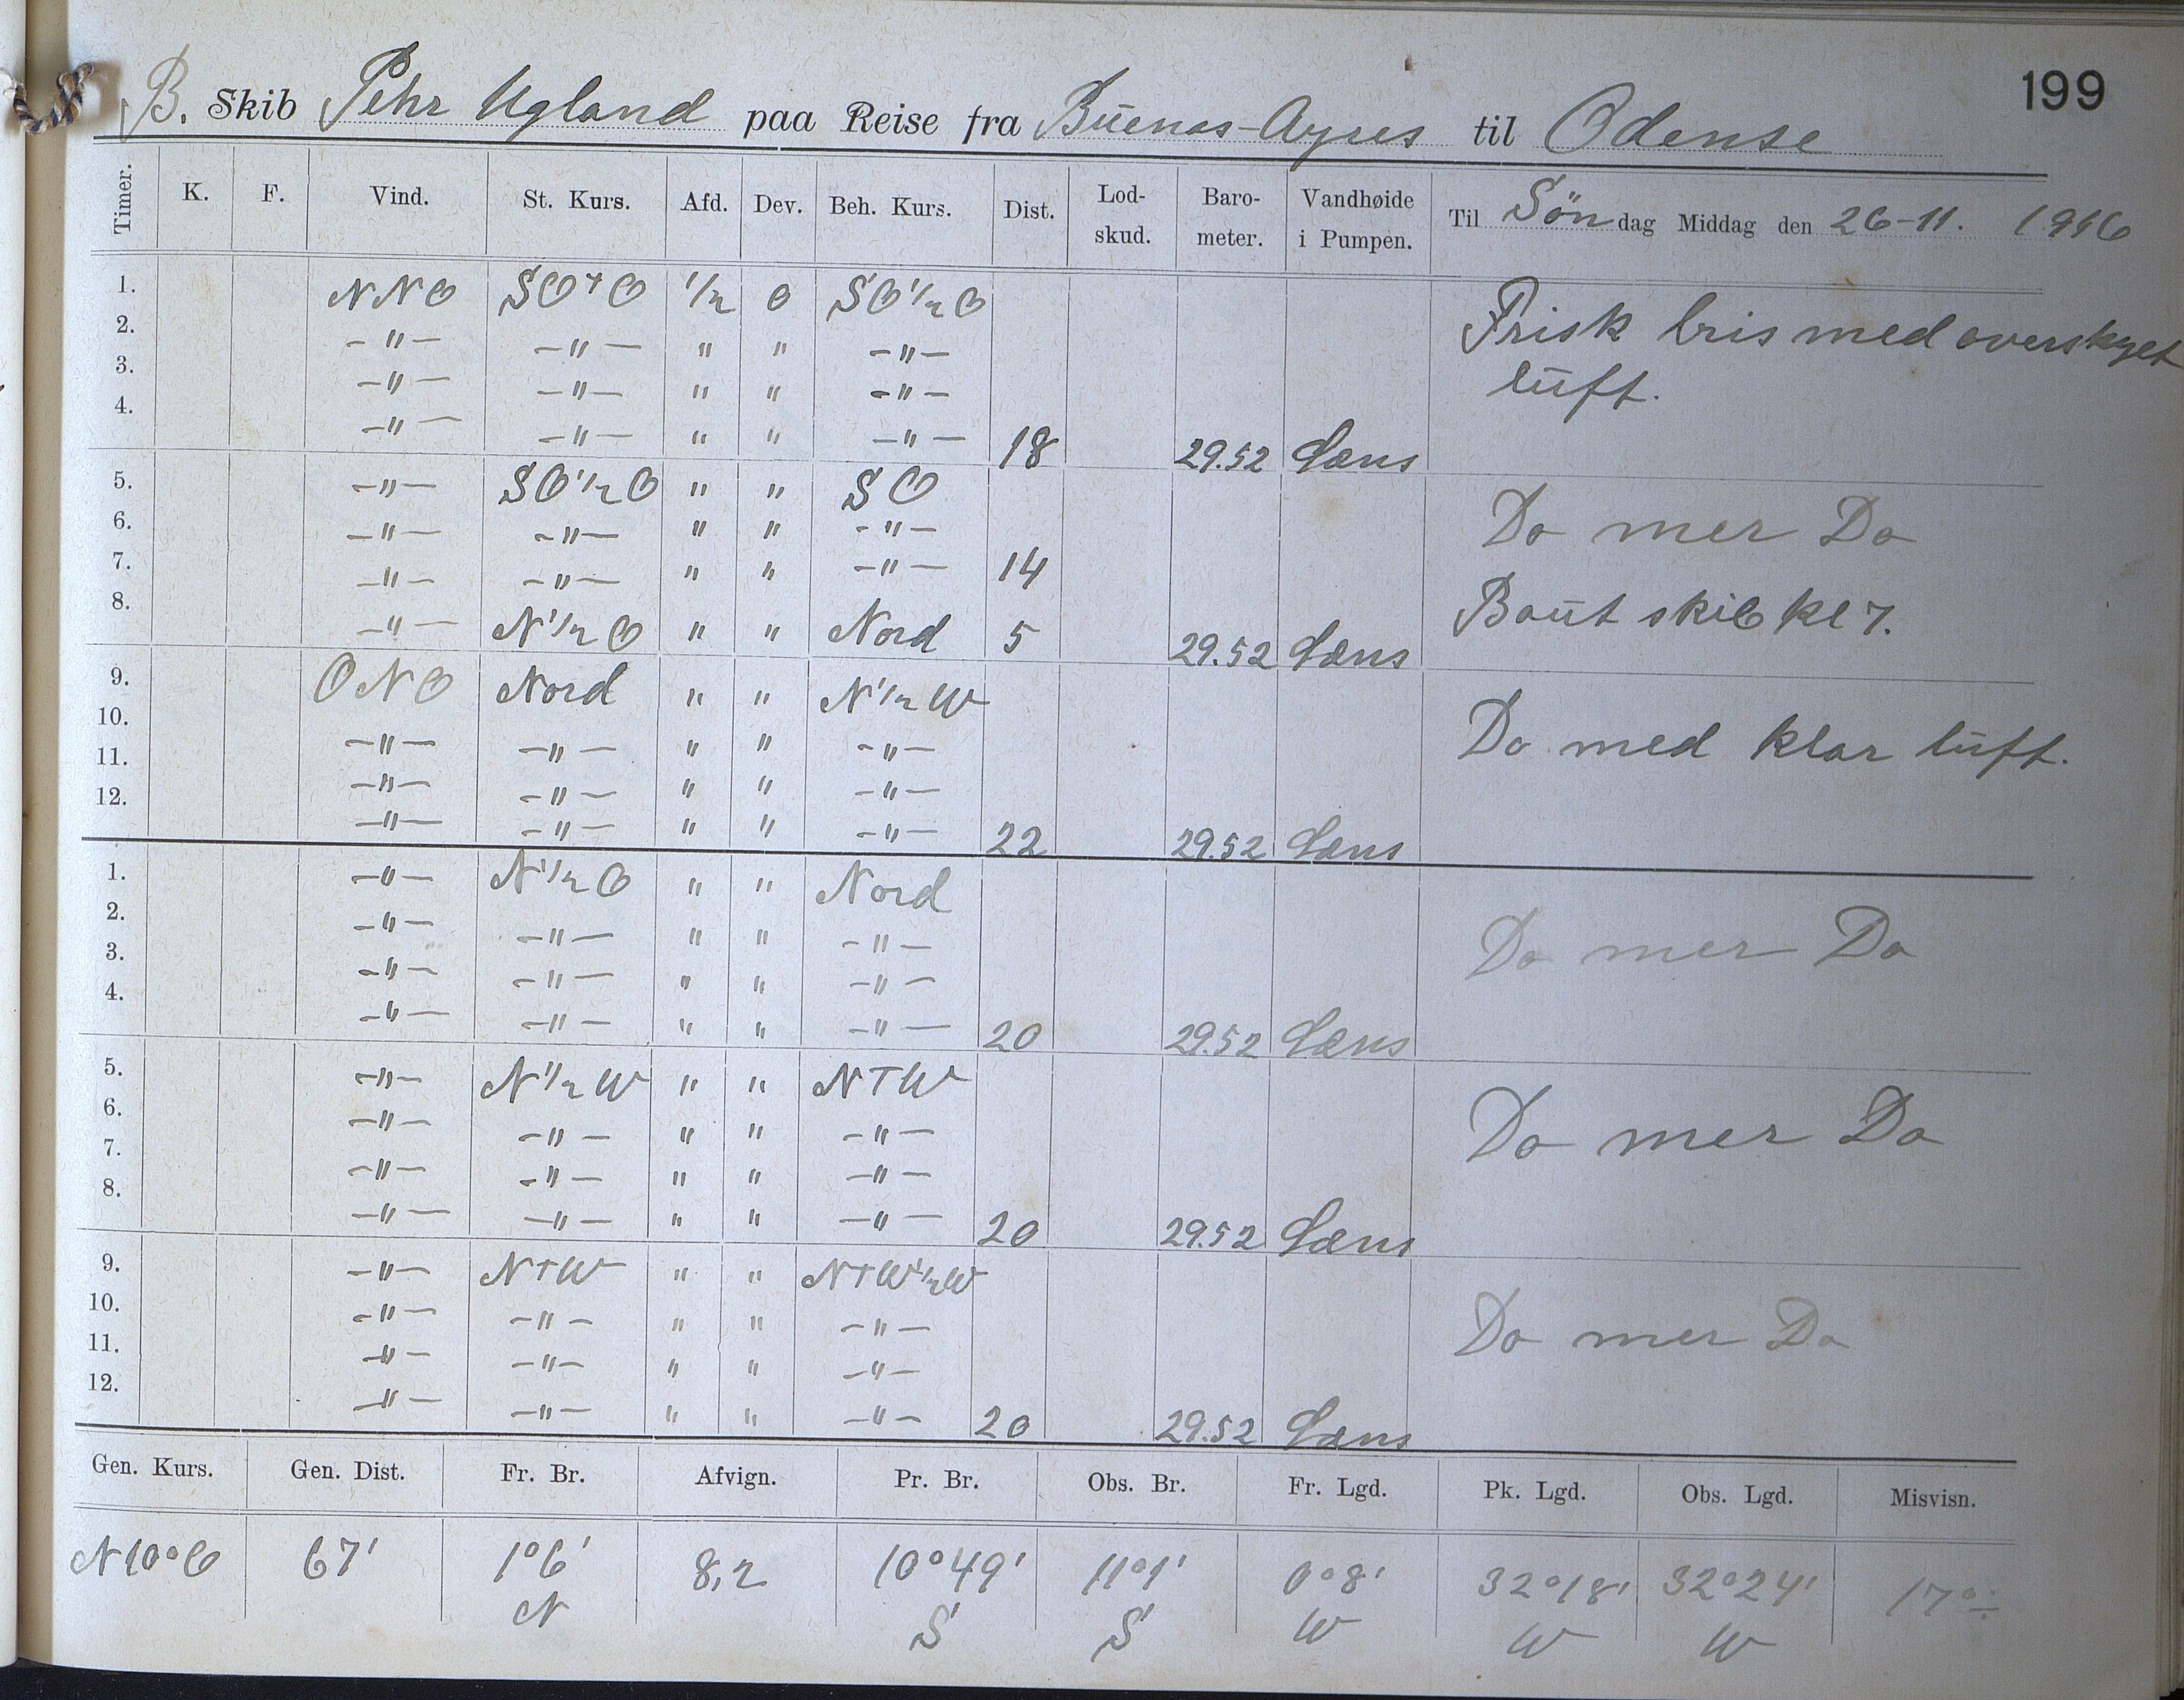 199
B. Skib Pehr Ugland paa Reise fra Buenos-Ayres til Odense
Timer. K. F. Vind. St. Kurs. Afd. Dev. Beh. Kurs. Dist. Lod-skud. Baro-meter. Vandhøide i Pumpen. Til Søndag Middag den 26-11. 1916
1. NNO SO+O 1/2 0 SO1/2O Frisk bris med overskyet
2. -"- -"- " " -"-
3. -"- -"- " " -"- luft.
4. -"- -"- " " -"- 18 29.52 Læns
5. -"- SO1/2O " " SO
6. -"- -"- " " -"- Do mer Do
7. -"- -"- " " -"- 14
8. -"- N1/2O " " Nord 5 29.52 Læns Baut skib kl 7.
9. ONO Nord " " N1/2W
10. -"- -"- " " -"- Do med klar luft.
11. -"- -"- " " -"-
12. -"- -"- " " -"- 22 29.52 Læns
1. -"- N1/2O " " Nord
2. -"- -"- " " -"- Do mer Do
3. -"- -"- " " -"-
4. -"- -"- " " -"- 20 29.52 Læns
5. -"- N1/2W " " NTW
6. -"- -"- " " -"- Do mer Do
7. -"- -"- " " -"-
8. -"- -"- " " -"- 20 29.52 Læns
9. -"- N+W " " N+W1/2W
10. -"- -"- " " -"- Do mer Do
11. -"- -"- " " -"-
12. -"- -"- " " -"- 20 29.52 Læns
Gen. Kurs. Gen. Dist. Fr. Br. Afvign. Pr. Br. Obs. Br. Fr. Lgd. Pk. Lgd. Obs. Lgd. Misvisn.
N10°O 67' 1°6' 8,2 10°49' 11°1' 0°8' 32°18' 32°24' 17°÷
N S S W W W